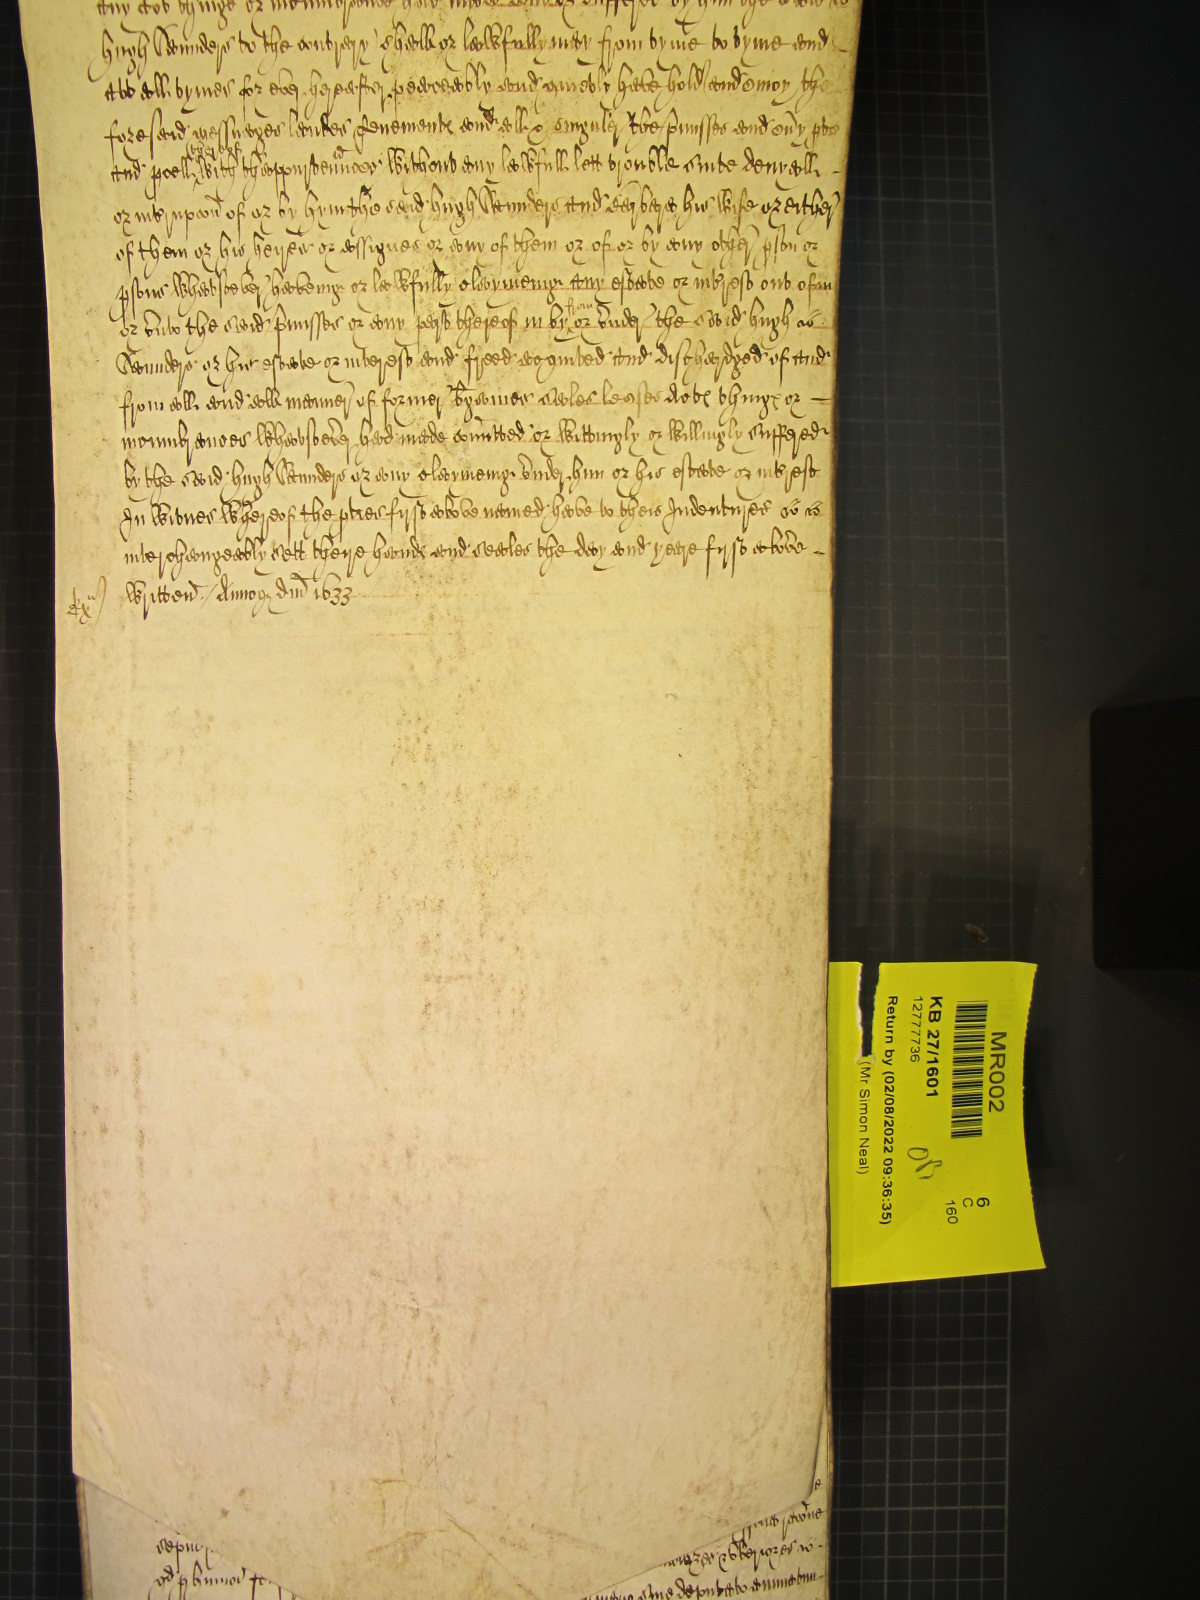 any act thinge or incumbrance had made done or suffered by him the said
hugh Saunders to the contrary shall or lawfully may from tyme to tyme and
att all tymes for ever hereafter peaceably and quietly have hold and enioy the
foresaid messuages landes tenementℯ and all & singuler the p'misses and ev'y pte
and pcell thereof with thappurtenˀnces without any lawfull lett trouble suite denyall
or interupcon of or by hym the said hugh Saunders and Barbara his wife or either
of them or his heires or assignes or any of them or of or by any other pson or
psons whatsoever haveing or lawfully claymeing any estate or interest out of in
or unto the said p'misses or any part thereof in by from or under the said hugh
Saunders or his estate or interest and freed acquited and dischardged of and
from all and all manner of former bargaines sales leases actℯ thingℯ or
incumbrances whatsoever had made comitted or wittingly or willingly suffered
by the said hugh Saunders or any claymeing under him or his estate or interest
In witnes whereof the pties first above named have to theis Indentures
interchangeably sett theire handℯ and seales the day and yeare first above
written / Annoqʒ dm̄ 1633
Exʳ
MR002
KB 27/1601
12777736
Return by (02/08/2022 09:36:35)
(Mr Simon Neal)
6
C
160